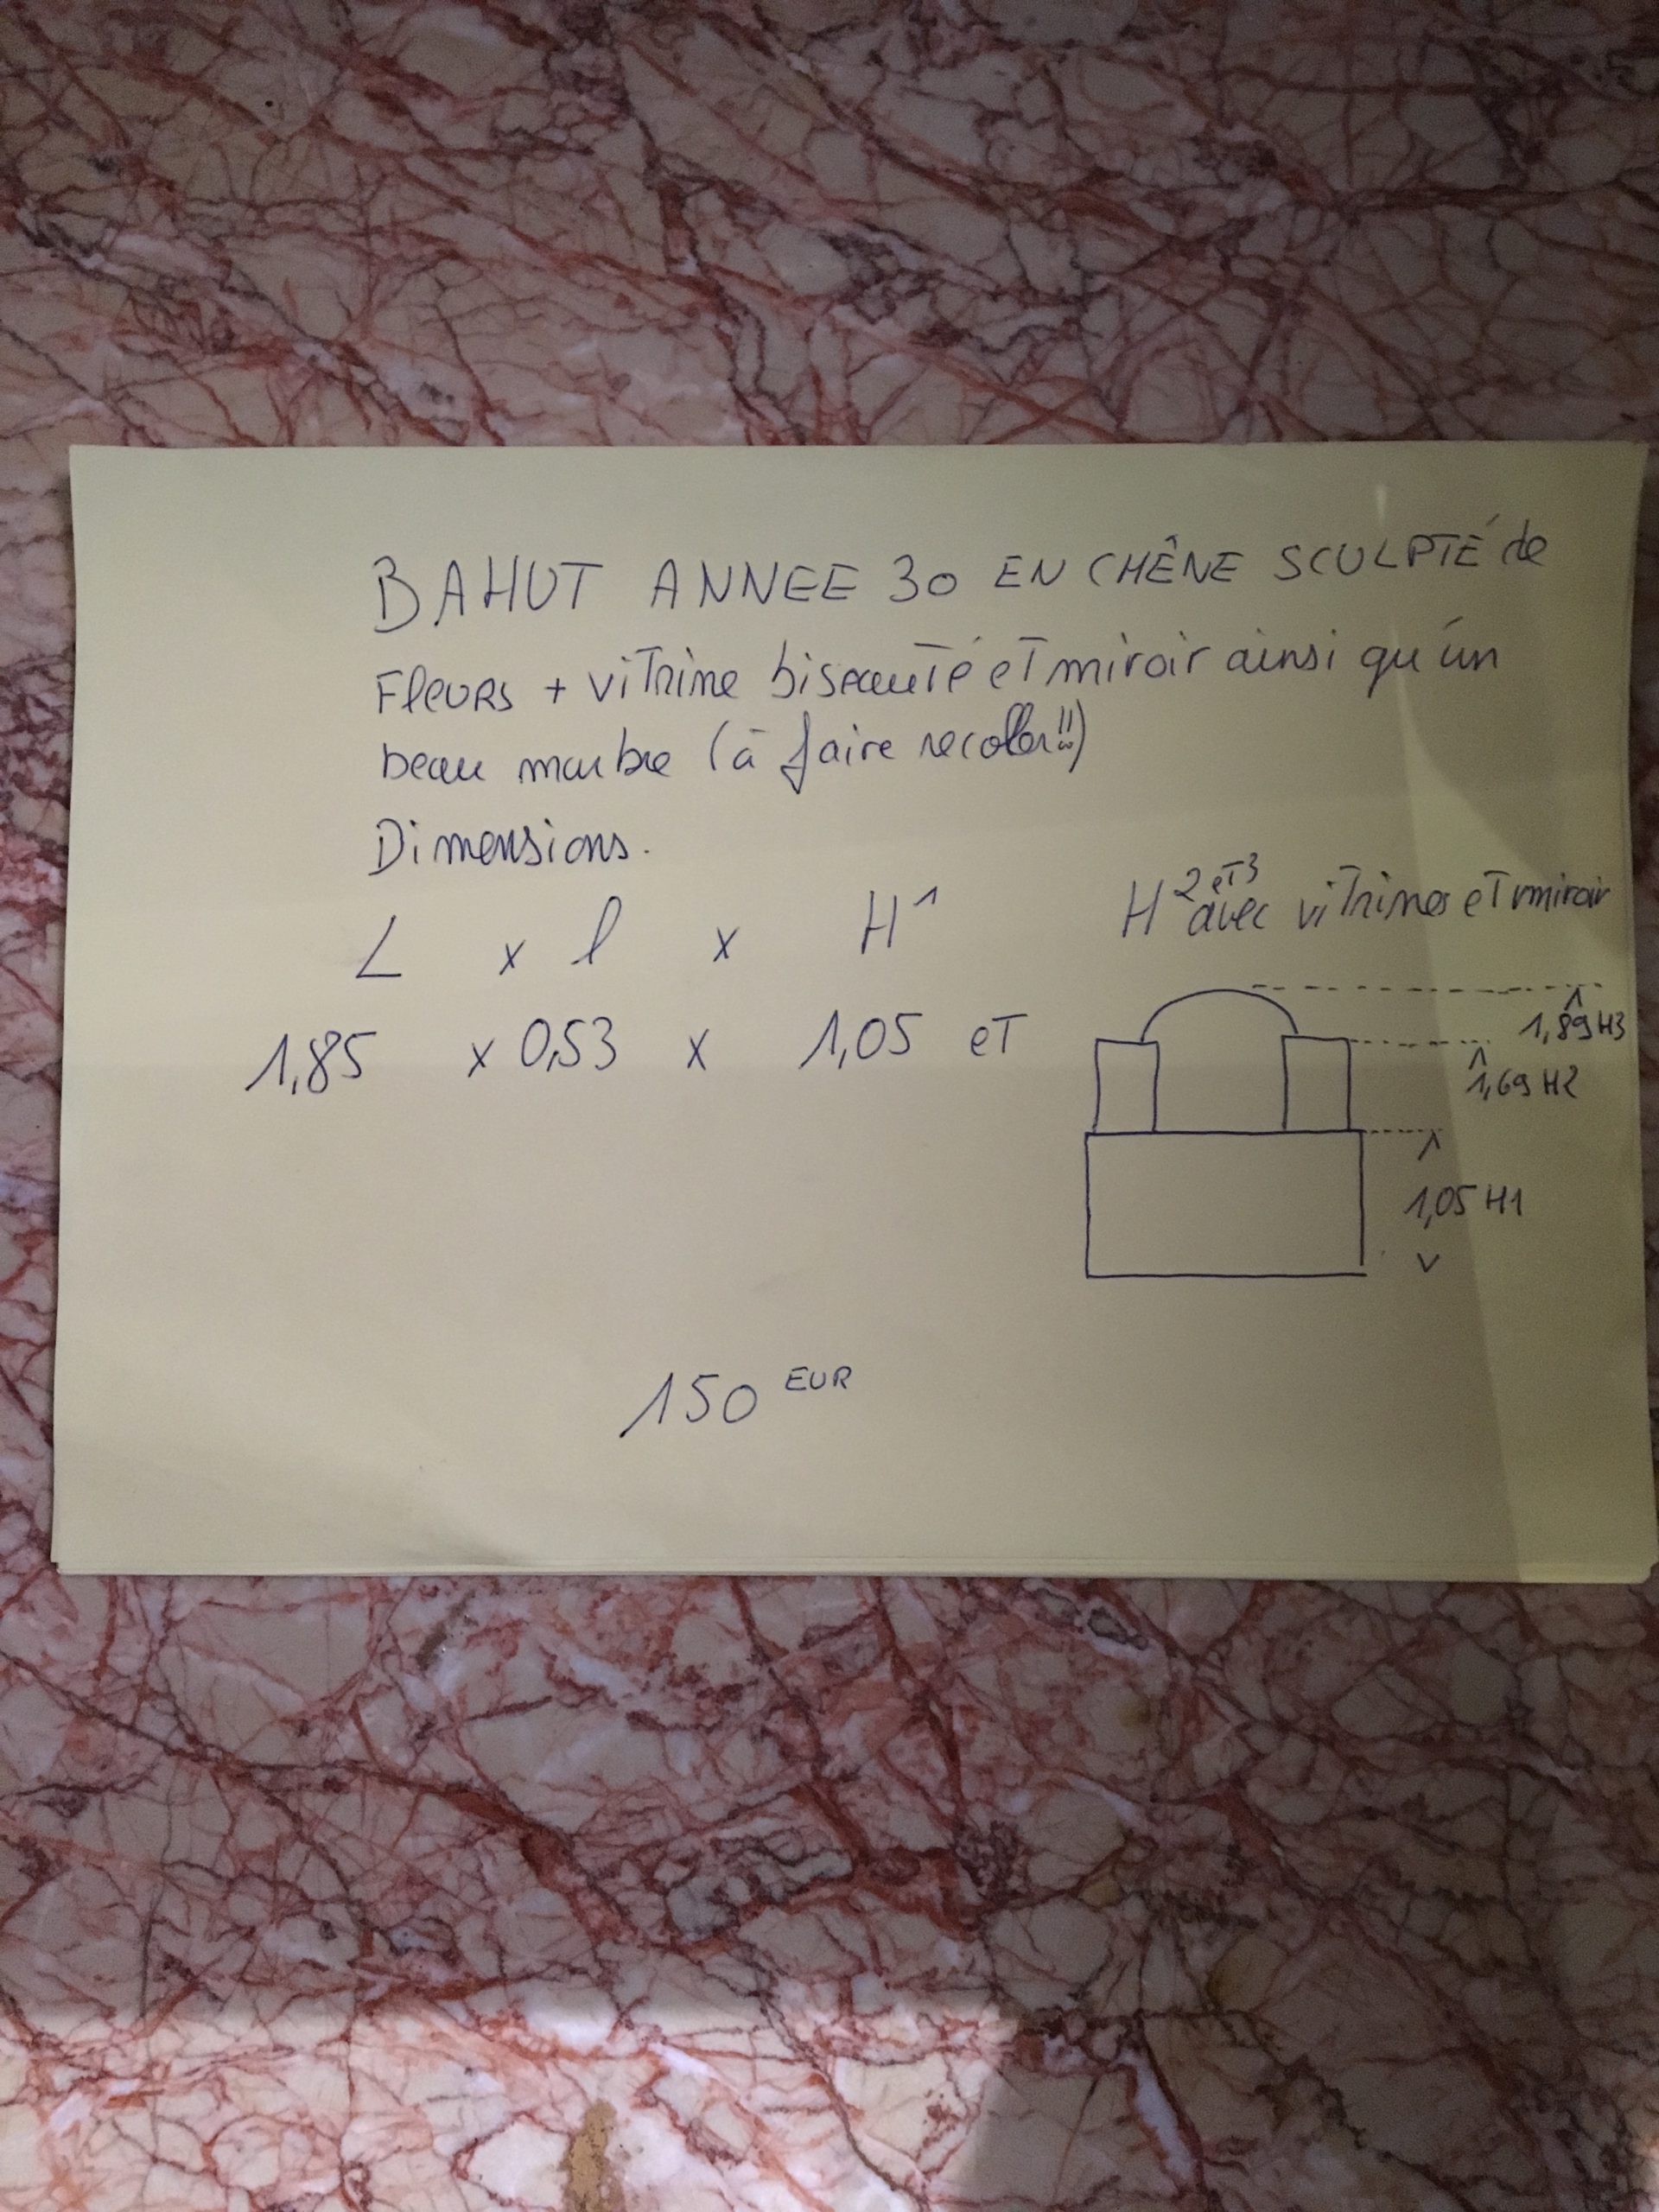 BAHUT ANNEE 30 EN CHÊNE SCULPTÉ de
Fleurs + vitrine biseauté et miroir ainsi qu'un
beau marbre (à faire recoller!!)
Dimensions.
L x l x H1
H2 et 3 avec vitrines et miroir
1,85 x 0,53 x 1,05 et
1,89 H3
1,69 H2
1,05 H1
150 EUR